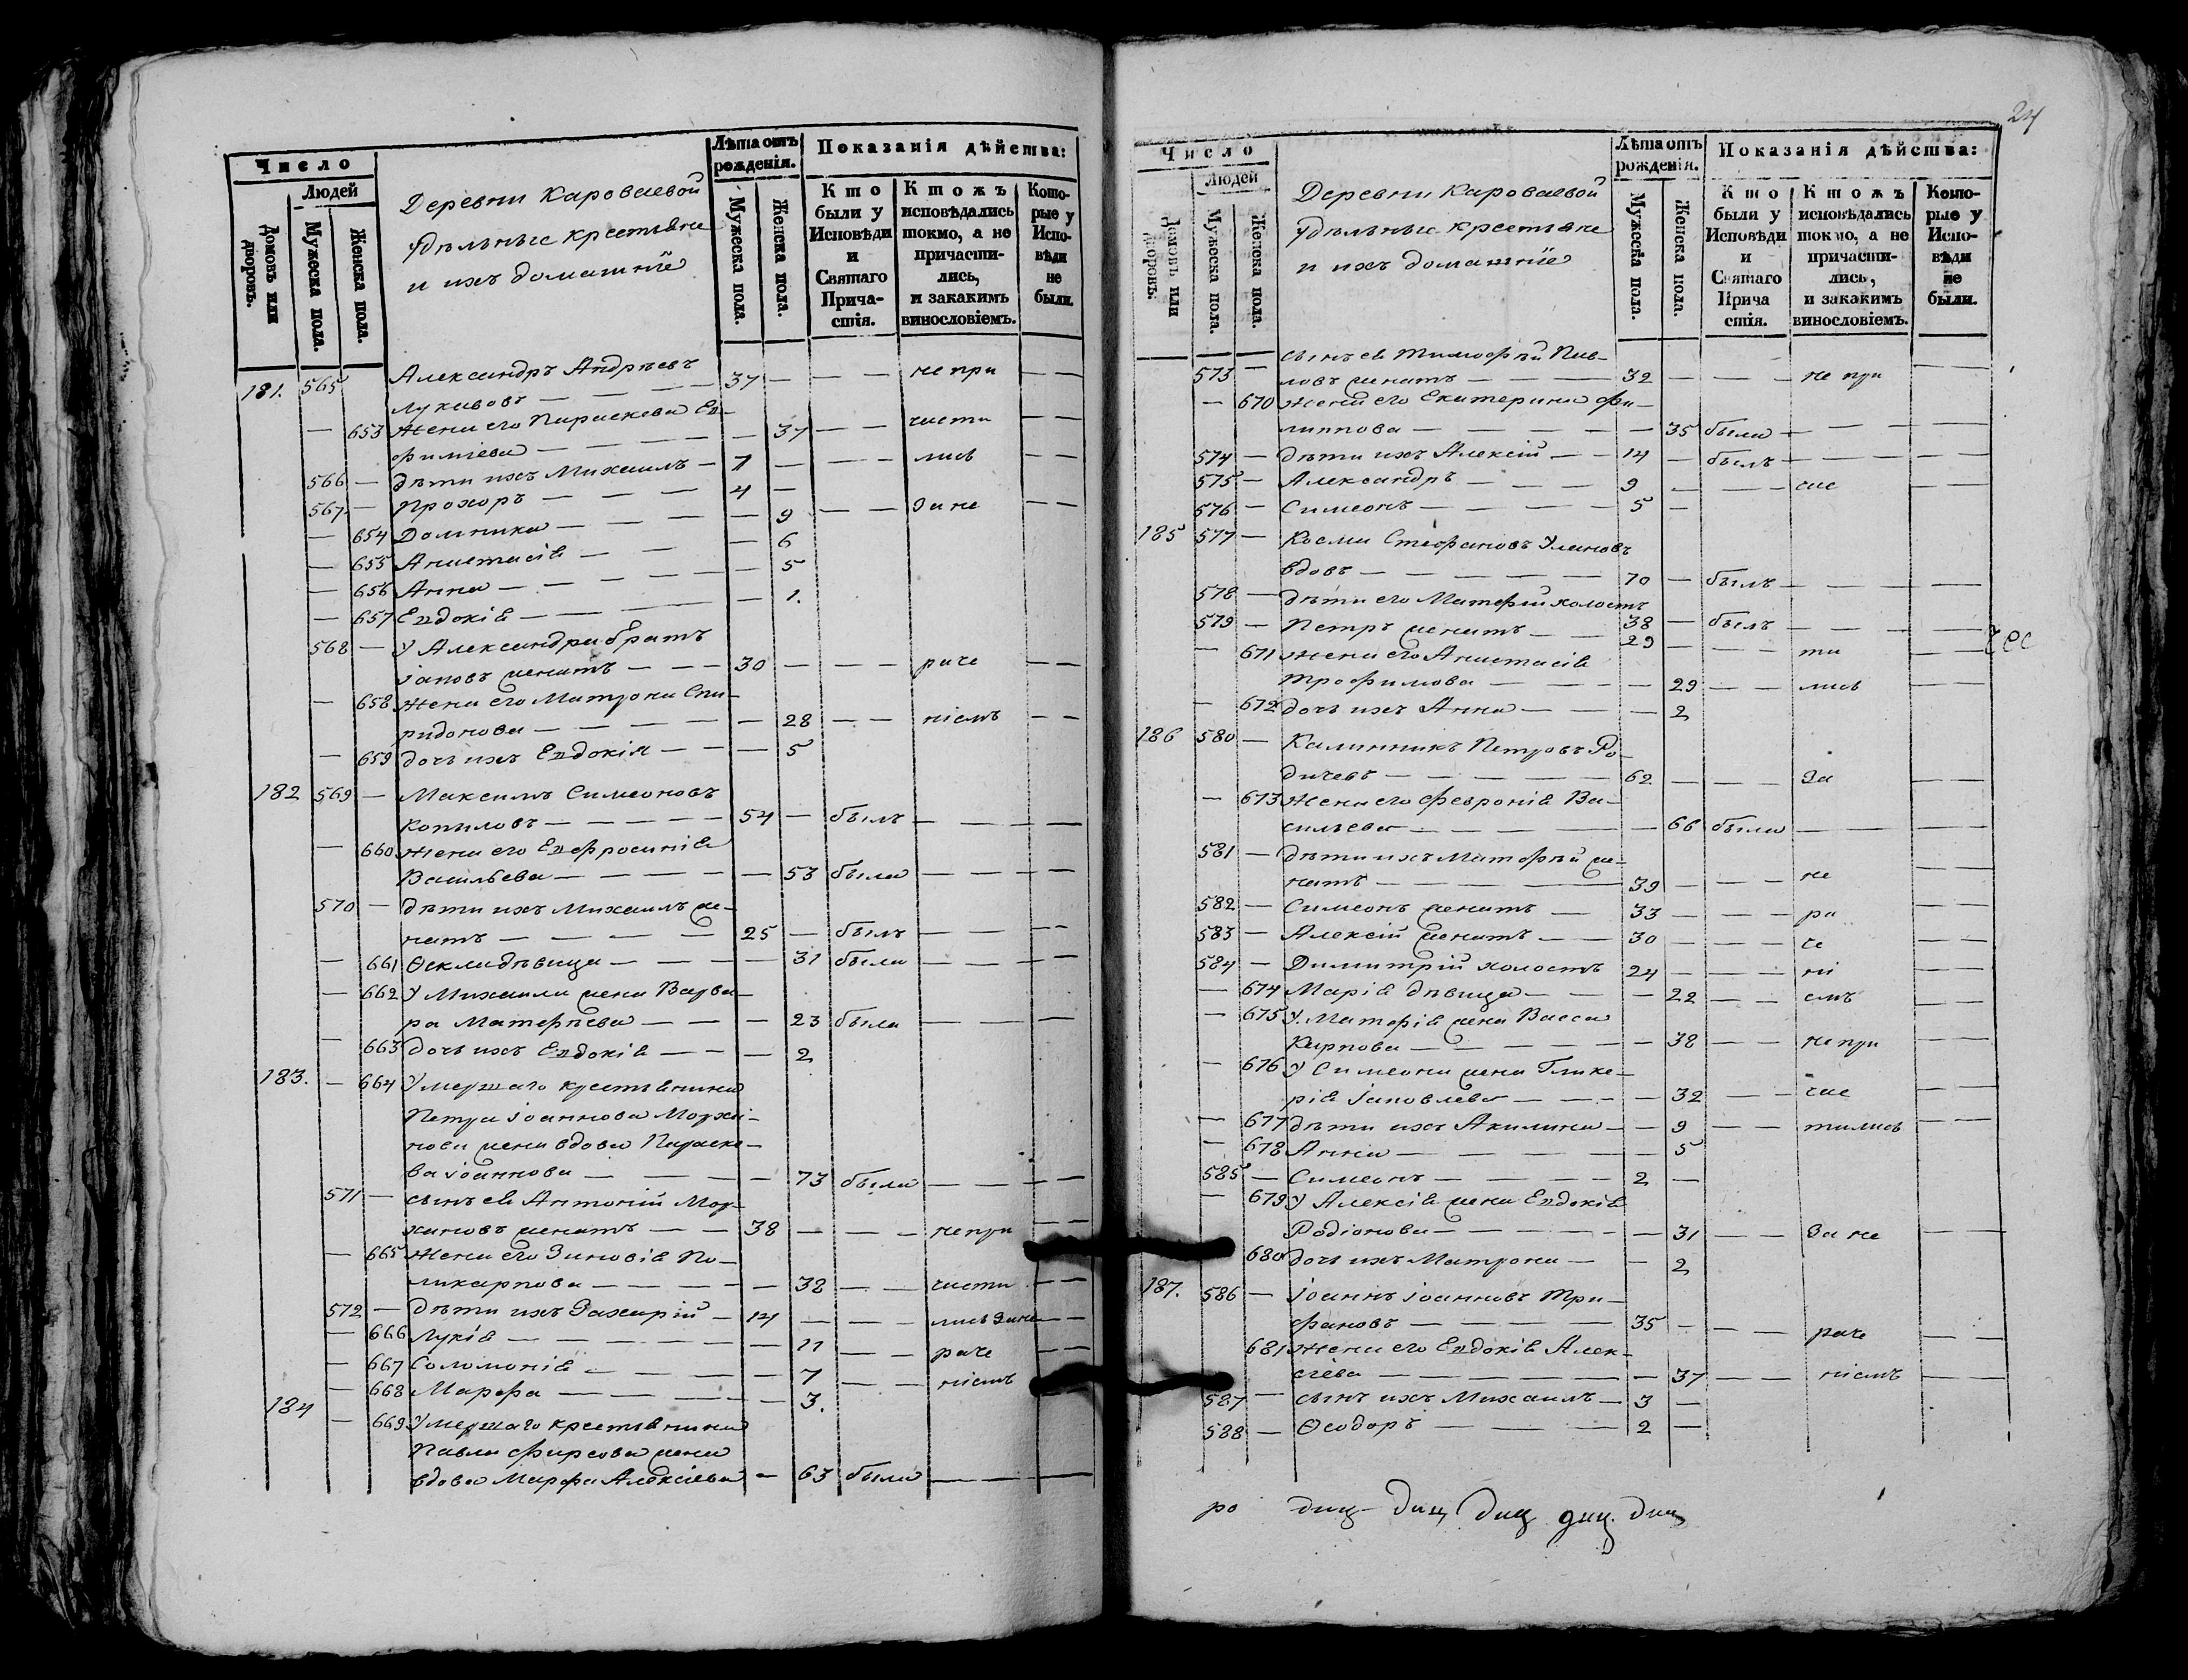 Число
Людей
Домовъ или дворовъ.
Мужеска пола.
Женска пола.
Деревни Караваевой
Удѣльные крестьяне
и ихъ домашніе
Лѣта отъ рожденія.
Мужеска пола.
Женска пола.
Показанія дѣйства:
Кто были у Исповѣди и Святаго Причастія.
Ктожъ исповѣдались токмо, а не причастились, и закакимъ винословіемъ.
Которые у Исповѣди не были.
181. 565 Александръ Андрѣевъ
Лукавовъ — — 37 — — — не при — —
— 653 Жена его Параскева Ев-
фиміева — — — — 37 — — части — —
566 — дѣти ихъ Михаилъ — 7 — — — лись — —
567 — Прохоръ — — — 4 —
— 654 Домника — — — — 9 — — За не — —
— 655 Анастасія — — — 6
— 656 Анна — — — — — 5
— 657 Евдокія — — — — 1.
568 — У Александра братъ
Іаковъ женатъ — — — 30 — — — раче — —
— 658 Жена его Матрона Спи-
ридонова — — — — — 28 — — ніемъ — —
— 659 дочь ихъ Евдокія — — — 5
182 569 — Максимъ Симеоновъ
Копиловъ — — — — — 54 — былъ — — — —
— 660 Жена его Евфросинія
Васильева — — — — — — 53 была — — — —
570 — дѣти ихъ Михаилъ же-
натъ — — — — — 25 — былъ — — — —
— 661 Ѳекла дѣвица — — — — 31 была — — — —
— 662 У Михаила жена Варва-
ра Матѳѣева — — — — 23 была — — —
— 663 дочь ихъ Евдокія — — — 2
183. — 664 Умершаго крестьянина
Петра Іоаннова Моржа-
нова жена вдова Параске-
ва Іоаннова — — — — 73 была — — — —
571 — сынъ ея Антоній Мор-
жановъ женатъ — — 38 — — — не при — —
— 665 Жена его Зиновія По-
ликарпова — — — — — 32 — — части — —
572 — дѣти ихъ Захарій — 14 — — — лись за не — —
— 666 Лукія — — — — — — 11 — — раче — —
— 667 Соломонія — — — — — 7 — — ніемъ — —
— 668 Марѳа — — — — — 3.
184 — 669 Умершаго крестьянина
Павла Фирсова жена
вдова Марфа Алексіева — 63 была — — —
24
Число
Людей
Домовъ или дворовъ.
Мужеска пола.
Женска пола.
Деревни Караваевой
Удѣльные крестьяне
и ихъ домашніе
Лѣта отъ рожденія.
Мужеска пола.
Женска пола.
Показанія дѣйства:
Кто были у Исповѣди и Святаго Причастія.
Ктожъ исповѣдались токмо, а не причастились, и закакимъ винословіемъ.
Которые у Исповѣди не были.
сынъ ея Тимофѣй Пав-
573 — ловъ женатъ — — — 32 — — — не при — —
— 670 Жена его Екатерина Фи-
липпова — — — — — 35 была — — — —
574 — дѣти ихъ Алексій — — 14 — былъ — — — —
575 — Александръ — — — 9 — — — час
576 — Симеонъ — — — — 5 —
185 577 — Косма Стефановъ Улановъ
вдовъ — — — — — 70 — былъ — — — —
578 — дѣти его Матфій холостъ
38 — былъ — — — —
579 — Петръ женатъ — — 29 — — — ти — —
— 671 Жена его Анастасія
Трофимова — — — — 29 — — лись — —
— 672 дочь ихъ Анна — — — 2
186 580 — Калинникъ Петровъ Ро-
дичевъ — — — — — 62 — — — За — —
— 673 Жена его Февронія Ва-
сильева — — — — — 66 была — — —
581 — дѣти ихъ Матфѣй же-
натъ — — — — 39 — — — не — —
582 — Симеонъ женатъ — 33 — — — ра — —
583 — Алексій женатъ — — 30 — — — че — —
584 — Димитрій холостъ 24 — — — ні — —
— 674 Марія дѣвица — — — 22 — — емъ — —
— 675 У Матфія жена Васса
Карпова — — — — — 38 — — не при — —
— 676 У Симеона жена Глике-
рія Іаковлева — — — — 32 — — час — —
— 677 дѣти ихъ Акилина — — 9 — — тились — —
— 678 Анна — — — — — 5
585 — Симеонъ — — — — 2 —
— 679 У Алексія жена Евдокія
Родіонова — — — — — 31 — — За не — —
680 дочь ихъ Матрона — — 2
187. 586 — Іоаннъ Іоанновъ Три-
фановъ — — — — 35 — — — раче — —
681 Жена его Евдокія Алек-
сіева — — — — — — 37 — — ніемъ — —
587 — сынъ ихъ Михаилъ — 3 —
588 — Ѳеодоръ — — — 2 —
ро диц- диц диц диц. диц